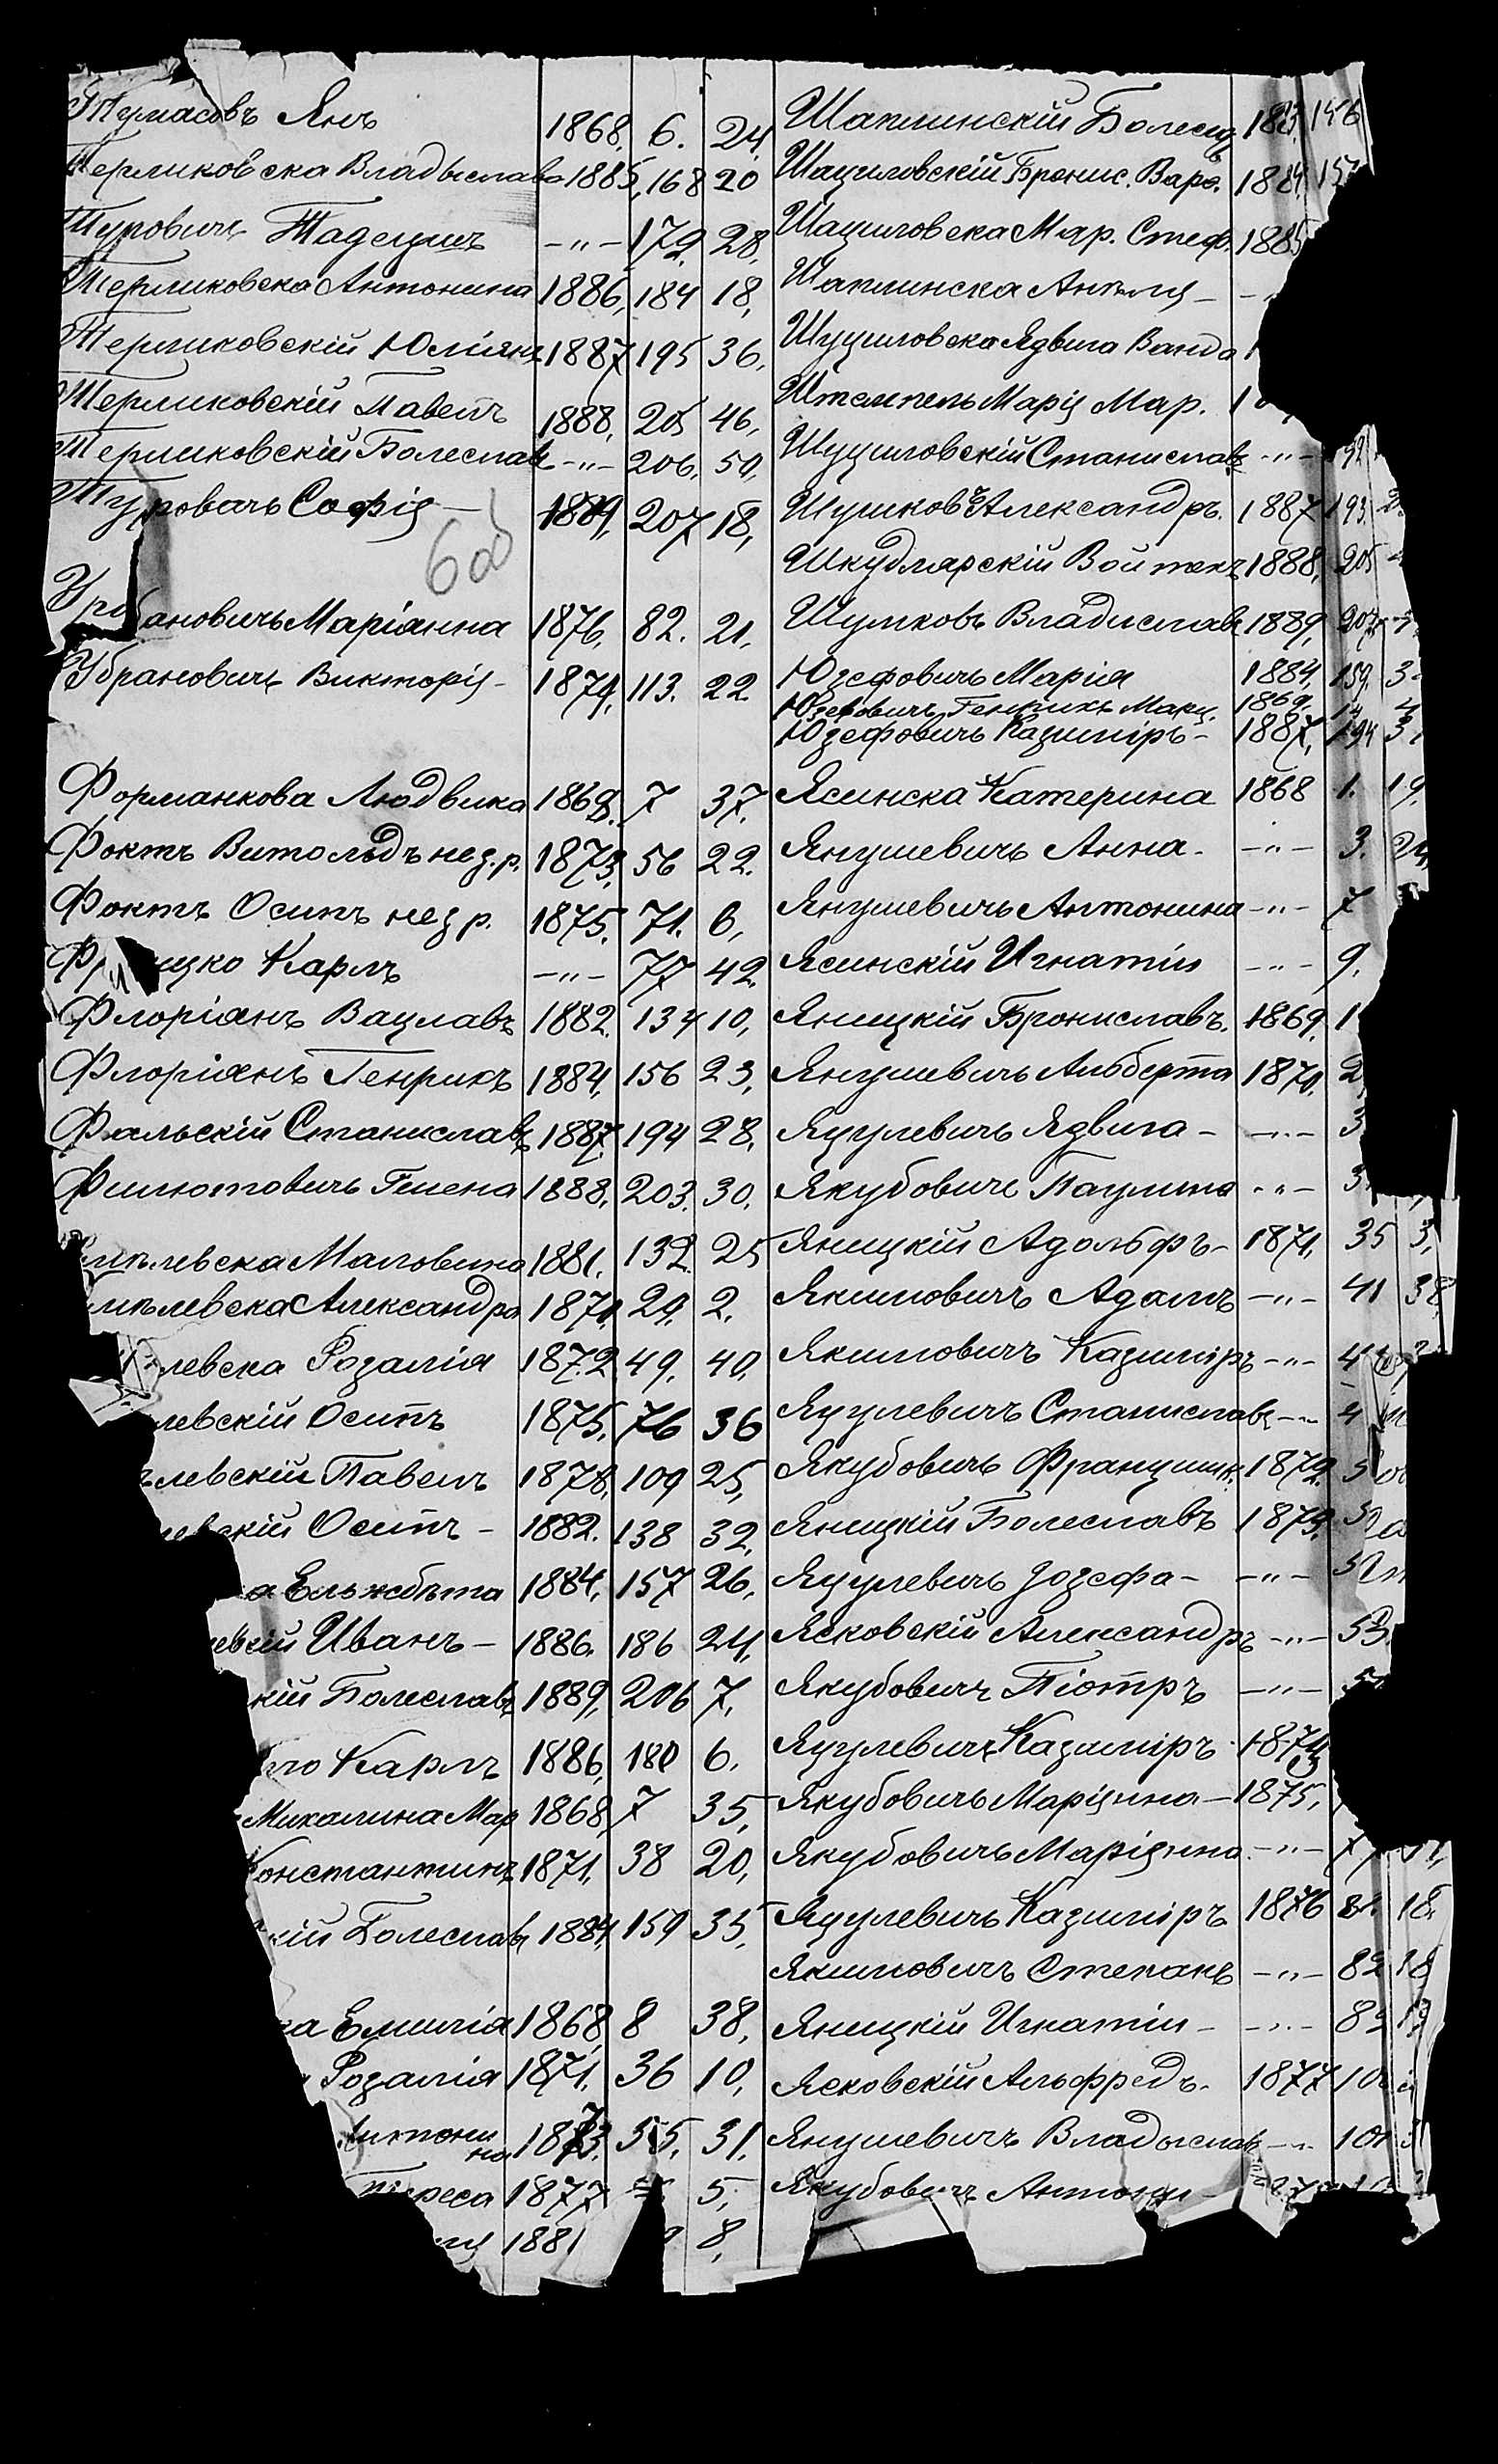 Термасовъ Янъ 1868, 6. 24,
Терликовска Владыслава 1885, 168 20
Туровичъ Тадеушъ —"— 179. 28,
Терликовска Антонина 1886, 184 18,
Терликовскій Юліянъ 1887 195 36,
Терликовскій Павелъ 1888, 205 46,
Терликовскій Болеславъ —"— 206. 50,
Туровичъ Софія — 1889, 207 18,
Урбановичъ Маріанна 1876, 82. 21,
Убрановичъ Викторія - 1879, 113. 22
Форманкова Людвика 1868. 7 37.
Фоктъ Витольдъ нез.р. 1873, 56 22.
Фоктъ Осипъ нез р. 1875. 71. 6,
цко Карлъ —"— 77 42.
Флоріанъ Вацлавъ 1882. 134 10,
Флоріанъ Генрикъ 1884, 156 23,
Фальскій Станиславъ 1887, 194 28,
Филютовичъ Гелена 1888, 203. 30.
левска Мальвина 1881. 132. 25
мѣлевска Александра 1870, 29. 2.
левска Розалія 1872 49, 40,
левскій Осипъ 1875, 76 36
ѣлевскій Павелъ 1878, 109 25,
левскій Осипъ - 1882. 138 32,
а Ельжбѣта 1884, 157 26,
евскій Иванъ — 1886. 186 24,
кій Болеславъ 1889, 206 7,
ло Карлъ 1886, 180 6.
Михалина Мар 1868, 7 35,
Константинъ 1871, 38 20,
кій Болеславъ 1884, 159 35,
ка Емилія 1868, 8 38,
а Розалія 1871. 36 10,
Антонина 1873. 55, 31,
Тереса 1877 5,
1881 8,
600
Шаплинскій Болесл 183 146
Шациловскій Бронис. Варѳ. 1884, 15
Шациловска Мар. Стеф. 1885
Шаплинска Анеля —
Шуциловска Ядвига Ванда 1
Штемпель Марія Мар. 1
Шуциловскій Станиславъ —"— 192
Шушковъ Александръ. 1887 193.
Шкудлярскій Войтехъ 1888, 205
Шумковъ Владиславъ 1889, 207
Юзефовичъ Марія 1884, 159. 3
Юзефовичъ Генрикъ Макс. 1869. 14
Юзефовичъ Казиміръ - 1887, 194 3
Ясинска Катерина 1868 1. 19.
Янушевичъ Анна. —"— 3. 24
Янушевичъ Антонина —"— 7
Ясинскій Игнатій —"— 9,
Яницкій Брониславъ. 1869, 1
Янушевичъ Альберта 1870. 2
Яцулевичъ Ядвига — —"— 3
Якубовичъ Паулина —"— 3
Яницкій Адольфъ - 1871, 35 3,
Якимовичъ Адамъ —"— 41 38,
Якимовичъ Казиміръ —"— 4
Яцулевичъ Станиславъ —"— 4
Якубовичъ Францишк. 1872. 5
Яницкій Болеславъ 1873, 5
Яцулевичъ Іозефа - —"— 5
Ясковскій Александръ —"— 53.
Якубовичъ Піотръ —"— 5
Яцулевичъ Казиміръ 1874
Якубовичъ Маріянна — 1875,
Якубовичъ Маріянна. —"— 7
Яцулевичъ Казиміръ 1876 81. 18.
Якимовичъ Степанъ —"— 82 18
Яницкій Игнатій - —"— 8
Ясковскій Альфредъ. 1877 10
Янушевичъ Владыславъ —"— 10
Якубовичъ Антони —